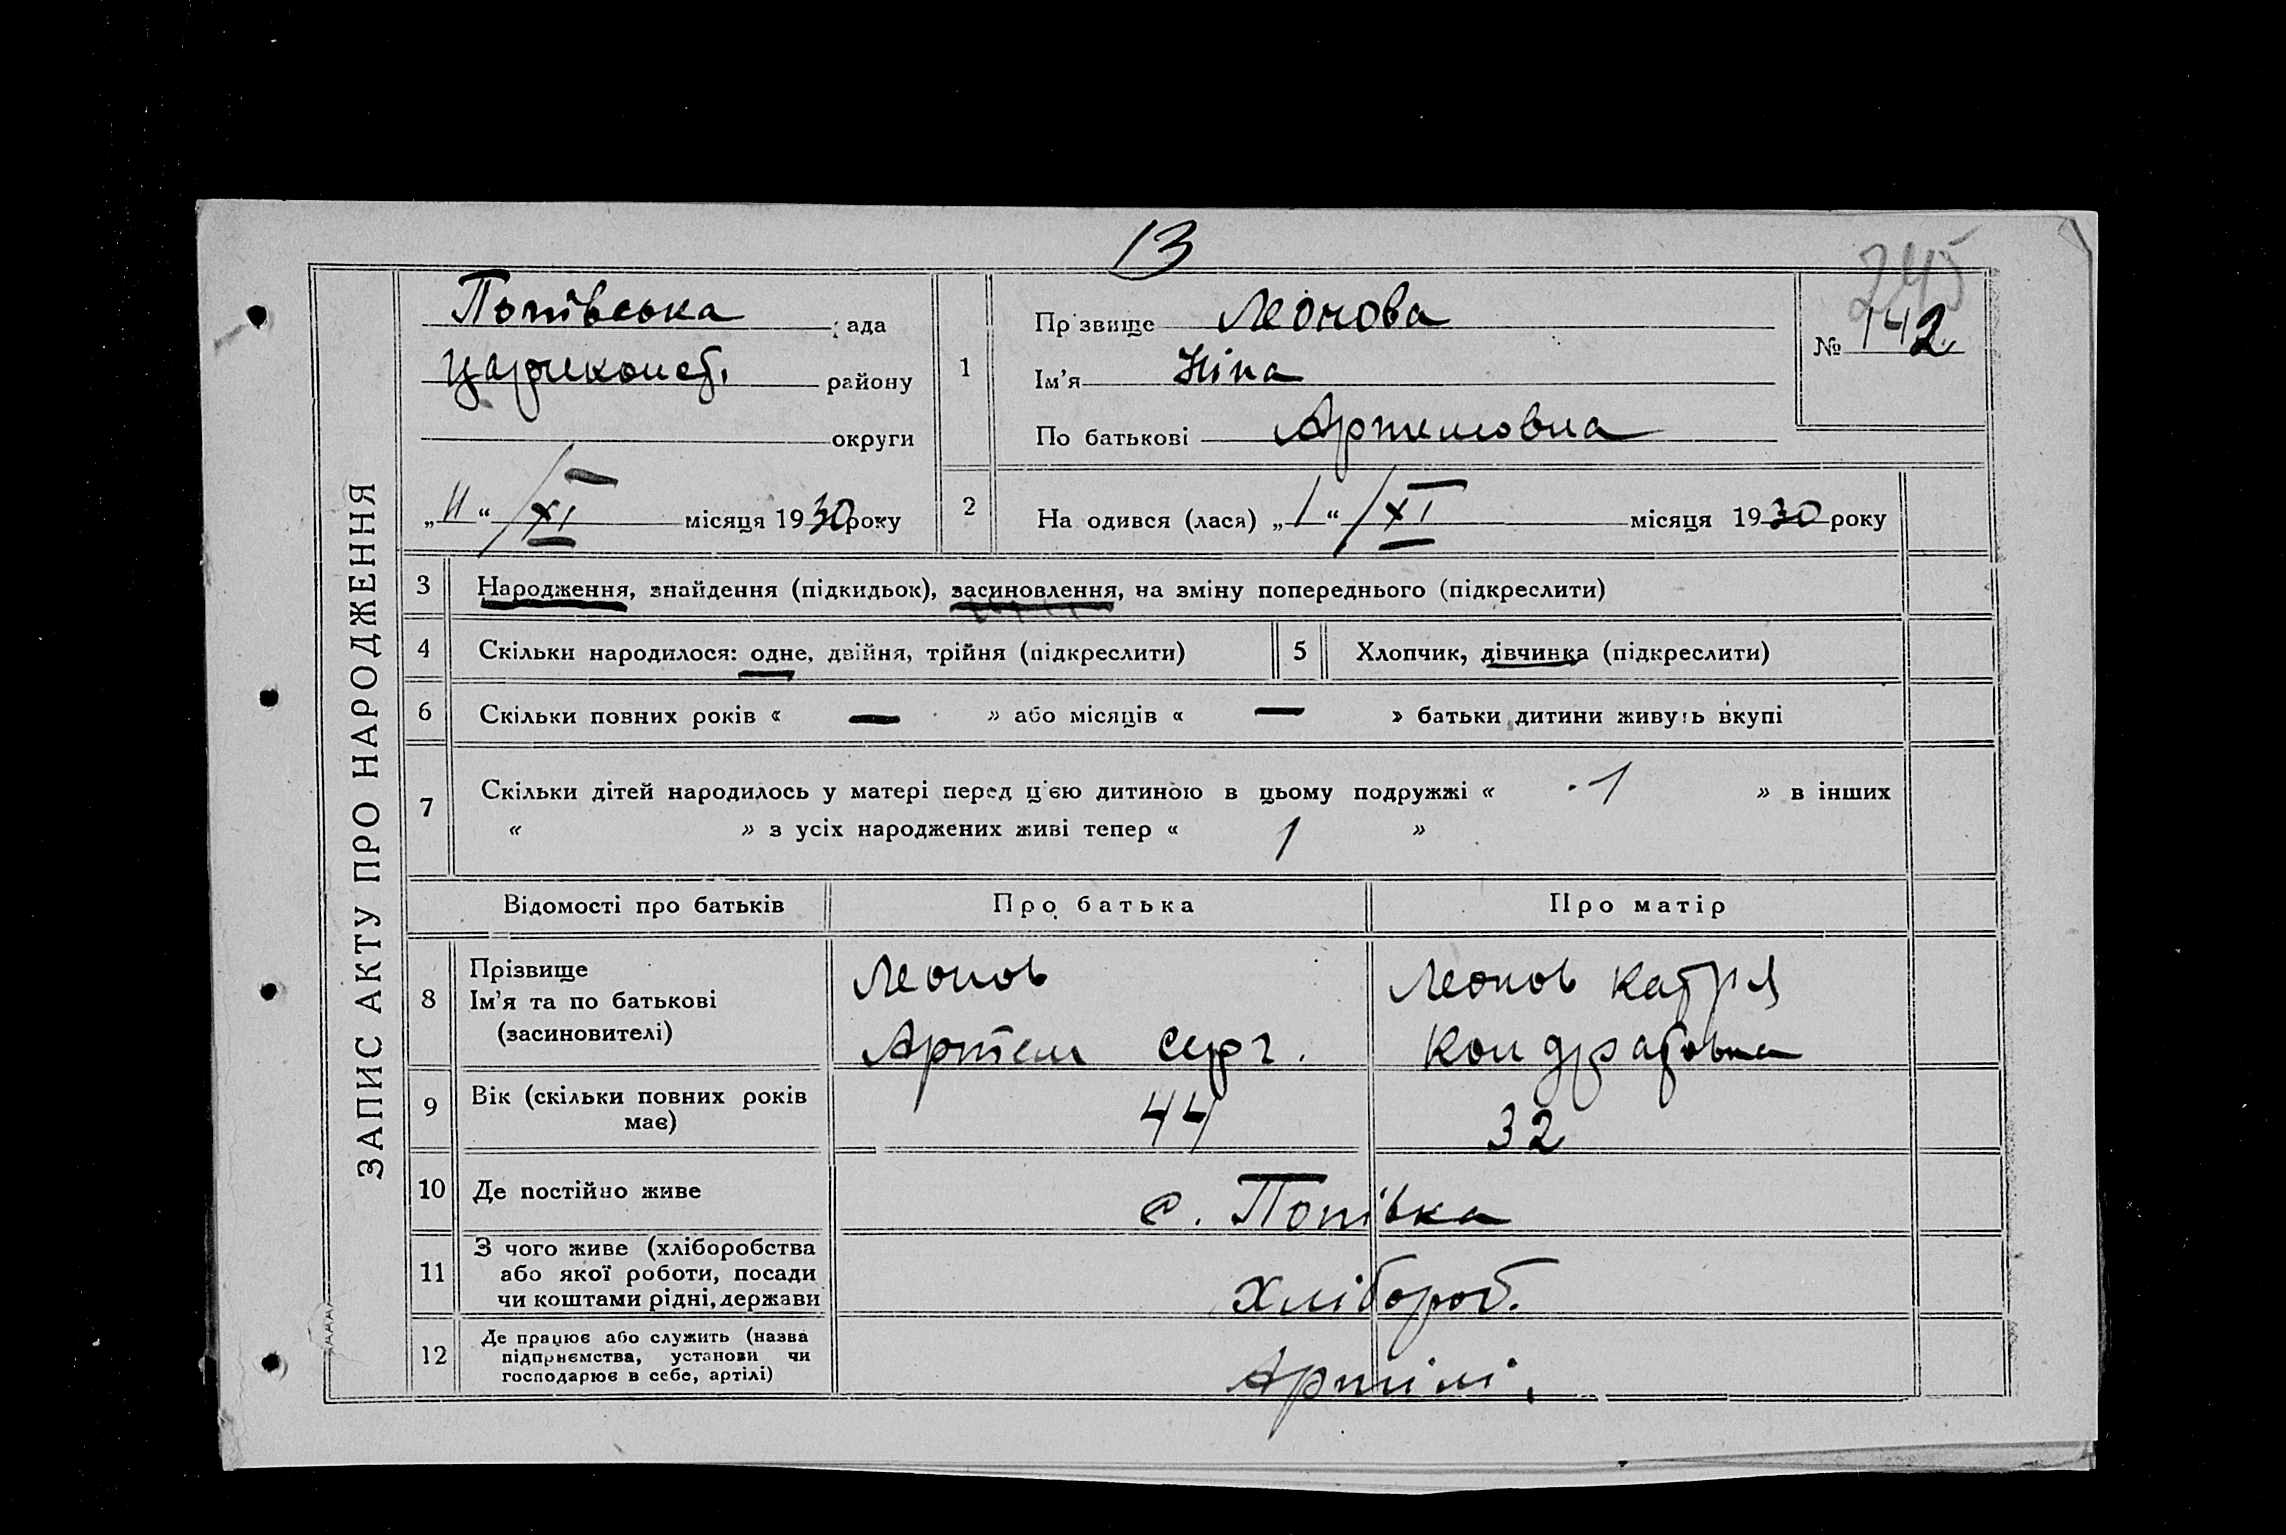 13
245
Попівська рада
Царичанськ. району
округи
„11“ /XI місяця 1930 року
1
Прізвище Леонова
Ім’я Ніна
По батькові Артемовна
№ 142
2
Народився (лася) „1“ /XI місяця 1930 року
ЗАПИС АКТУ ПРО НАРОДЖЕННЯ
3 Народження, знайдення (підкидьок), засиновлення, на зміну попереднього (підкреслити)
4 Скільки народилося: одне, двійня, трійня (підкреслити)
5 Хлопчик, дівчинка (підкреслити)
6 Скільки повних років « — » або місяців « — » батьки дитини живуть вкупі
7 Скільки дітей народилось у матері перед цією дитиною в цьому подружжі « 1 » в інших
« » з усіх народжених живі тепер « 1 »
Відомості про батьків Про батька Про матір
8 Прізвище
Ім’я та по батькові
(засиновителі)
Леонов
Артем Серг.
Леонов Катря
Кондратовна
9 Вік (скільки повних років
має)
44 32
10 Де постійно живе
с. Попівка
11 З чого живе (хліборобства
або якої роботи, посади
чи коштами рідні, держави
Хлібороб.
12 Де працює або служить (назва
підприємства, установи чи
господарює в себе, артілі)
Артілі.